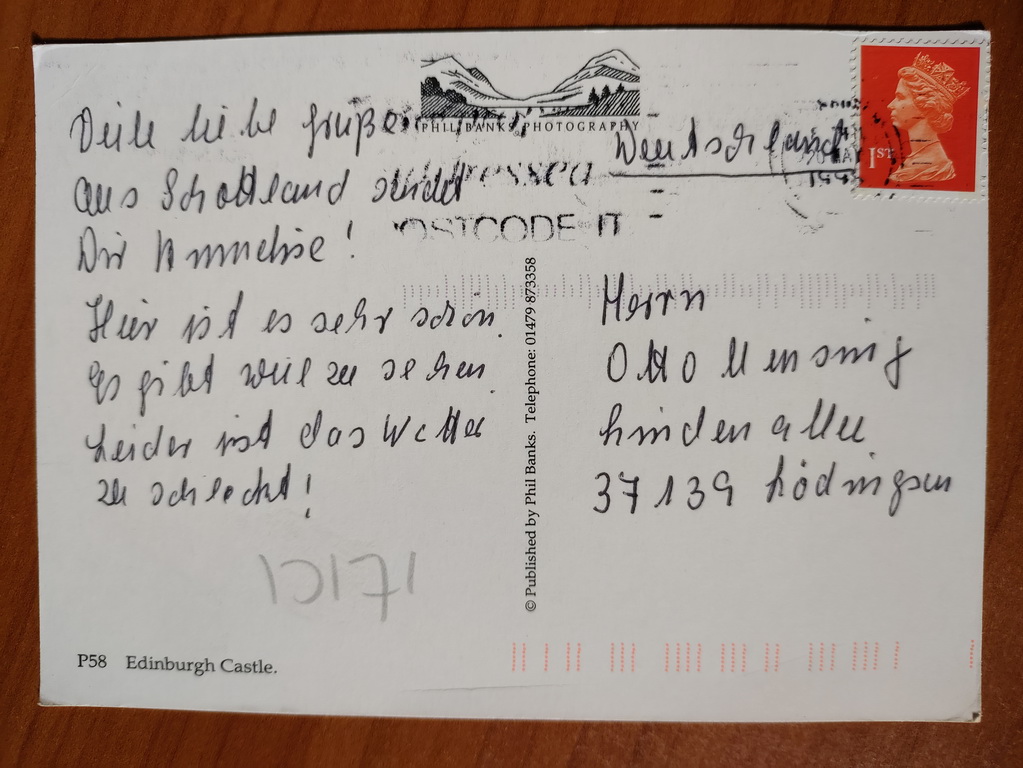 PHIL BANKS PHOTOGRAPHY
1ST
POSTCODE IT
Viele liebe Grüße
aus Schottland sendet
Dir Annneliese!
Hier ist es sehr schön.
Es gibt viel zu sehen.
Leider ist das Wetter
zu schlecht!
Deutschland
Herrn
Otto Mensing
Lindenallee
37139 Lödingsen
© Published by Phil Banks. Telephone: 01479 873358
P58 Edinburgh Castle.